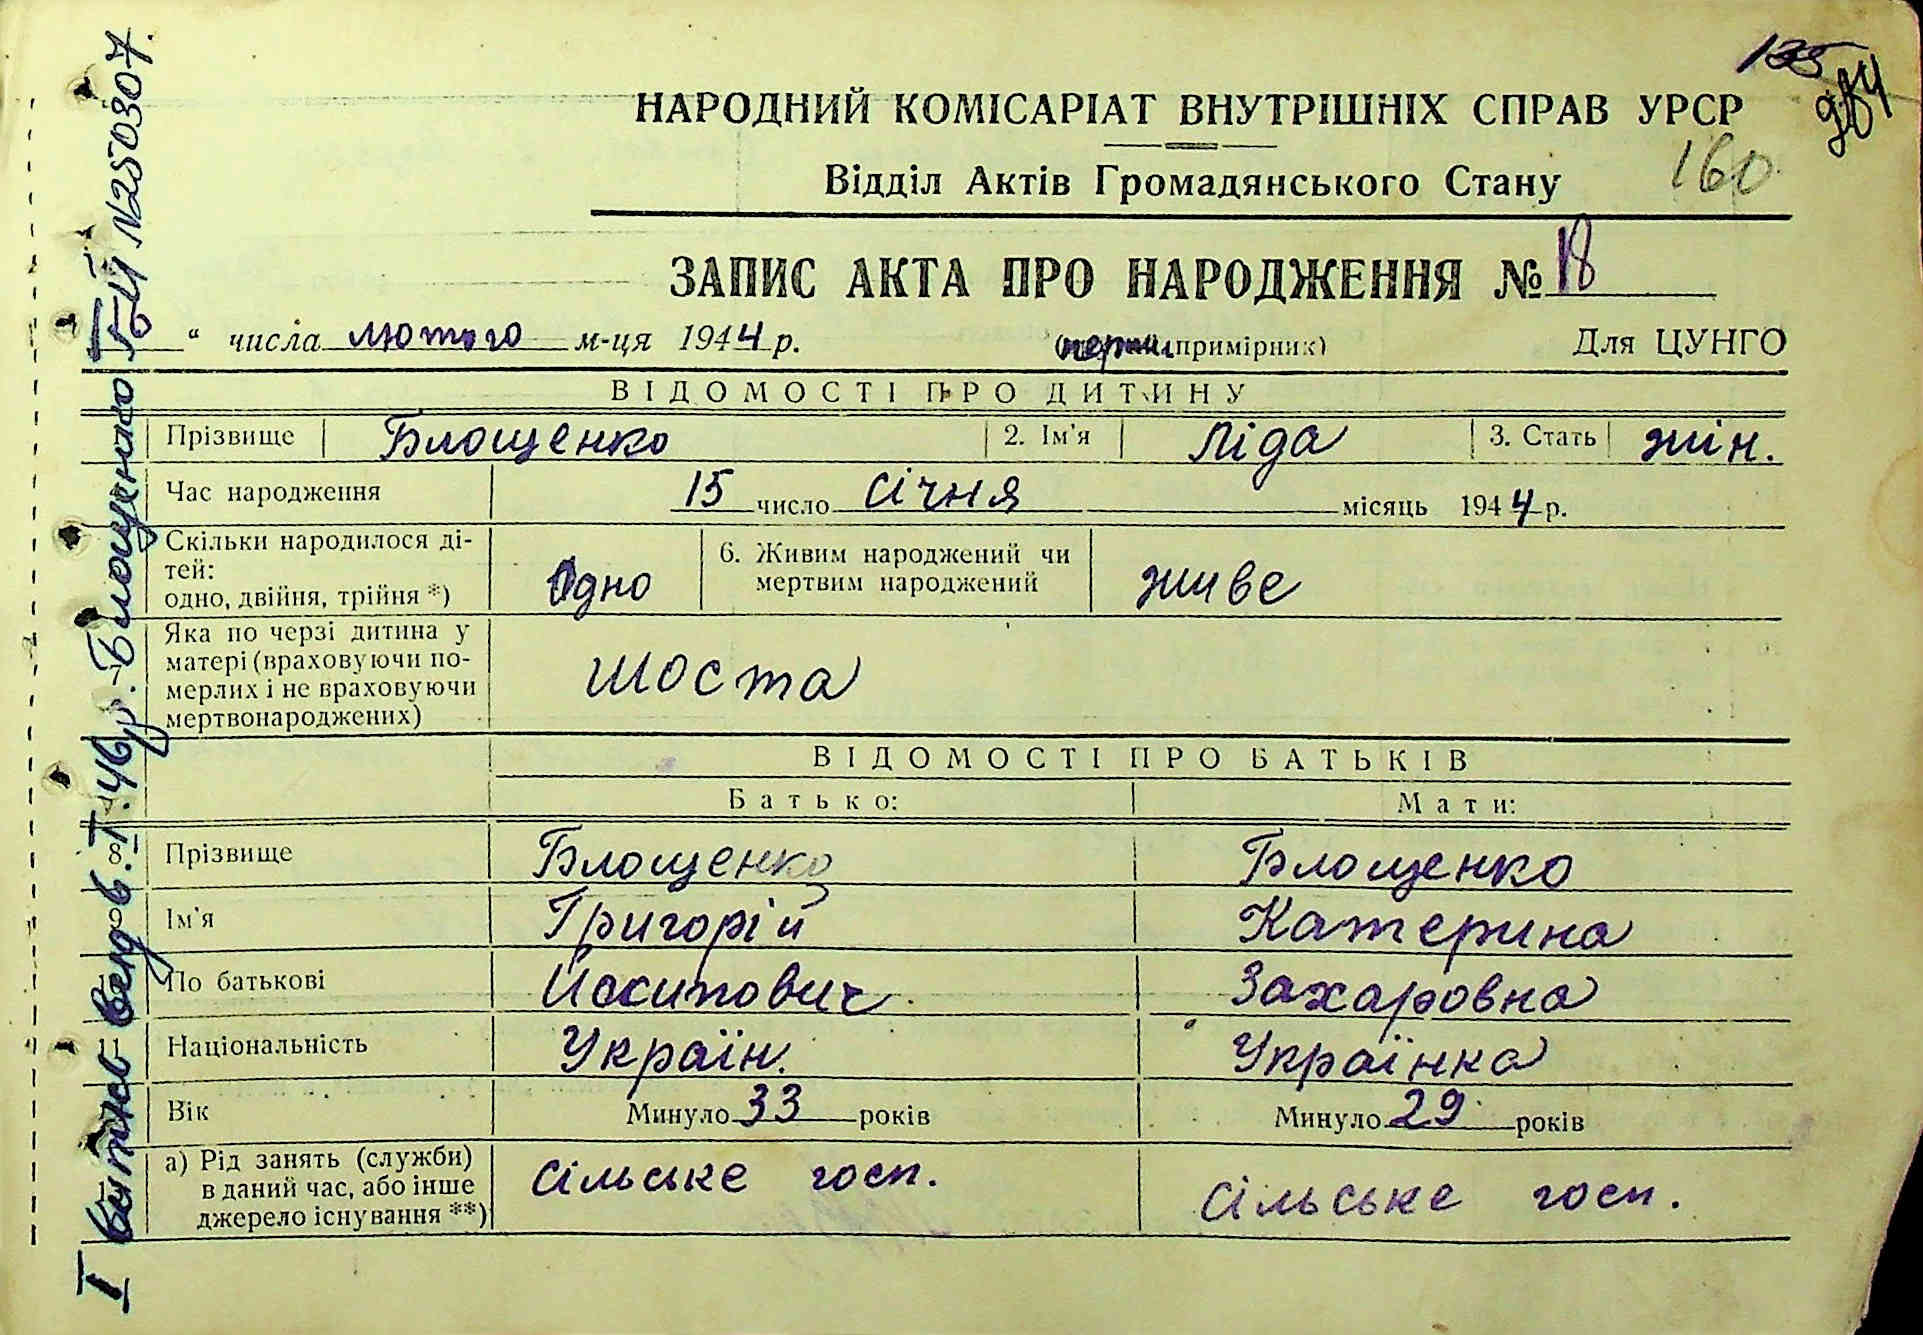 НАРОДНИЙ КОМІСАРІАТ ВНУТРІШНІХ СПРАВ УРСР
Відділ Актів Громадянського Стану
160
ЗАПИС АКТА ПРО НАРОДЖЕННЯ № 18
“ числа лютого м-ця 1944 р. примірник) Для ЦУНГО
ВІДОМОСТІ ПРО ДИТИНУ
Прізвище Блощенко 2. Ім'я Ліда 3. Стать жін.
Час народження 15 число січня місяць 1944 р.
Скільки народилося ді-
тей:
одно, двійня, трійня *) Одно
6. Живим народжений чи
мертвим народжений живе
Яка по черзі дитина у
матері (враховуючи по-
мерлих і не враховуючи
мертвонароджених) шоста
ВІДОМОСТІ ПРО БАТЬКІВ
Батько: Мати:
8. Прізвище Блощенко Блощенко
9 Ім'я Григорій Катерина
По батькові Йосипович Захаровна
11 Національність Україн. Українка
Вік Минуло 33 років Минуло 29 років
а) Рід занять (служби)
в даний час, або інше
джерело існування **) сільське госп. сільське госп.
N250307.